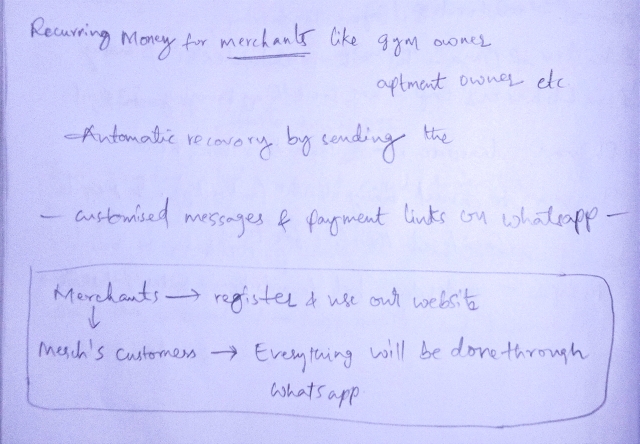 Recurring Money for merchants like gym owner
aptment owner etc
Automatic recovory by sending the
- customised messages & payment links on whatsapp -
Merchants → register & use our website
↓
Merch's customers → Everything will be done through
whatsapp